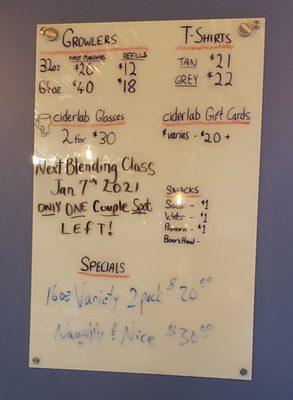 GROWLERS
FIRST PURCHASE REFILLS
32oz $20 $12
64oz $40 $18
ciderlab Glasses
2 For $30
Next Blending Class
Jan 7th 2021
ONLY ONE Couple Spot
LEFT!
T-SHIRTS
TAN $21
GREY $22
ciderlab Gift Cards
$varies - $20 +
SNACKS
Soda - $1
Water - $1
Popcorn - $1
Boar's Head -
SPECIALS
16oz Variety 2 pack $20.00
Naughty & Nice $30.00